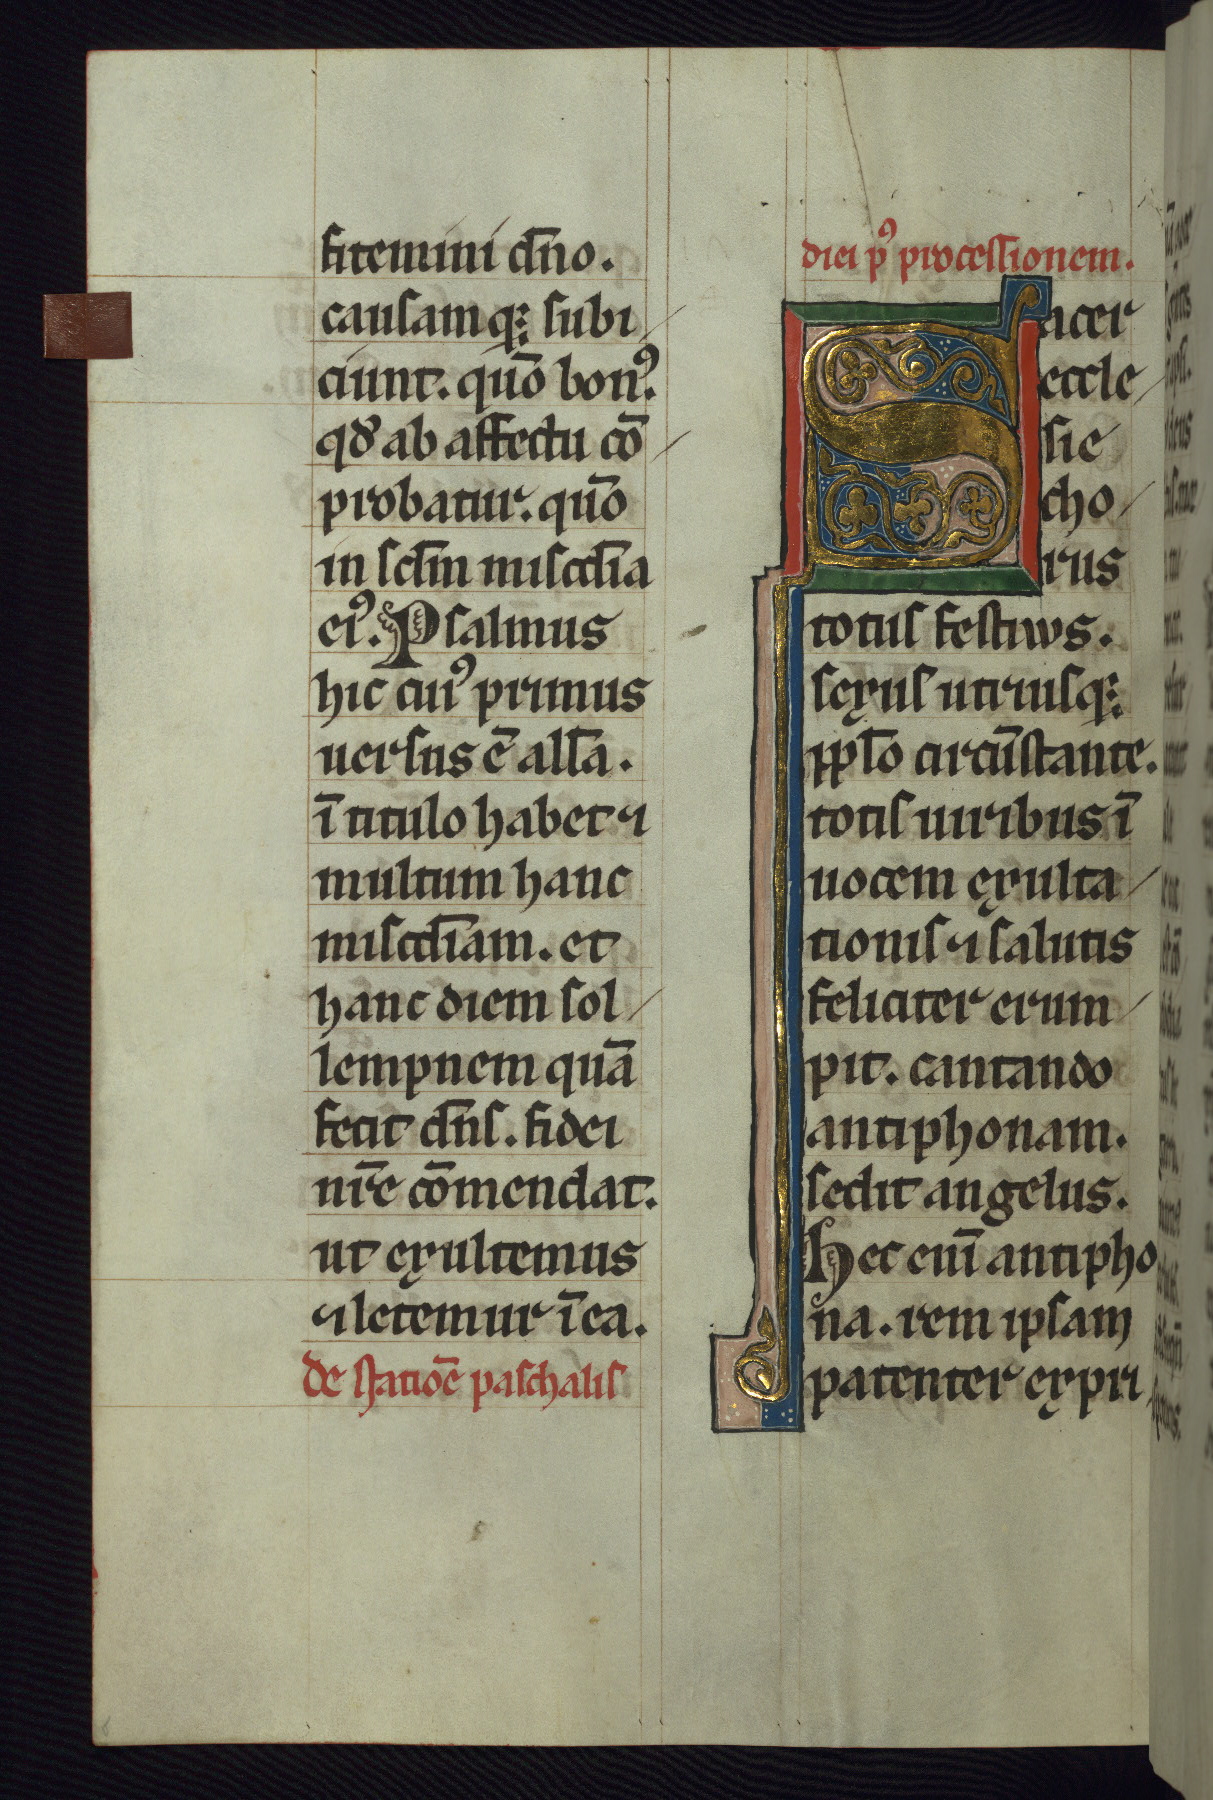 fitemini dn̄o.
causamq; subi
ciunt. quō bonꝰ.
qd̕ ab affectu cō
probatur. quō
in scl̄m misc̄dia
eiꝰ. Psalmus
hic cuiꝰ primus
uersus ē all̄a.
ī titulo habet ⁊
multum hanc
misc̄diam. et
hanc diem sol
lempnem quā
fecit dn̄s. fidei
nr̄e cōmendat.
ut exultemus
⁊ letemur ī ea.
de statiōe paschalis
diei pꝰ processionem.
Sacer
eccle
sie
cho
rus
totus festiuus.
sexus utriusq;
pp̄lo circūstante.
totis uiribus ī
uocem exulta
tionis ⁊ salutis
feliciter erum
pit. cantando
antiphonam.
sedit angelus.
Hec enī antipho
na. rem ipsam
patenter expri